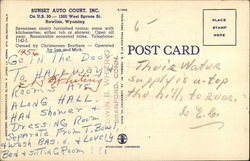 SUNSET AUTO COURT, INC.
On U.S. 30 — 1302 West Spruce St.
Rawlins, Wyoming
Twenty modernly furnished rooms; some with kitchenettes; either tub or shower. Open all year. Reasonable seasonal rates. Telephone
Owned by Christensen Brothers — Operated
by Lea and Mick
1956
Go in the Door
To Hallway
Rooms Are
Along HALL
Had Shower &
Dressing Room
Separate From T. Bowl
& Wash Basin. & Lovely
Bed & Sitting Room!!!
POST CARD
Their Water
supply is atop
the hill, to rear.